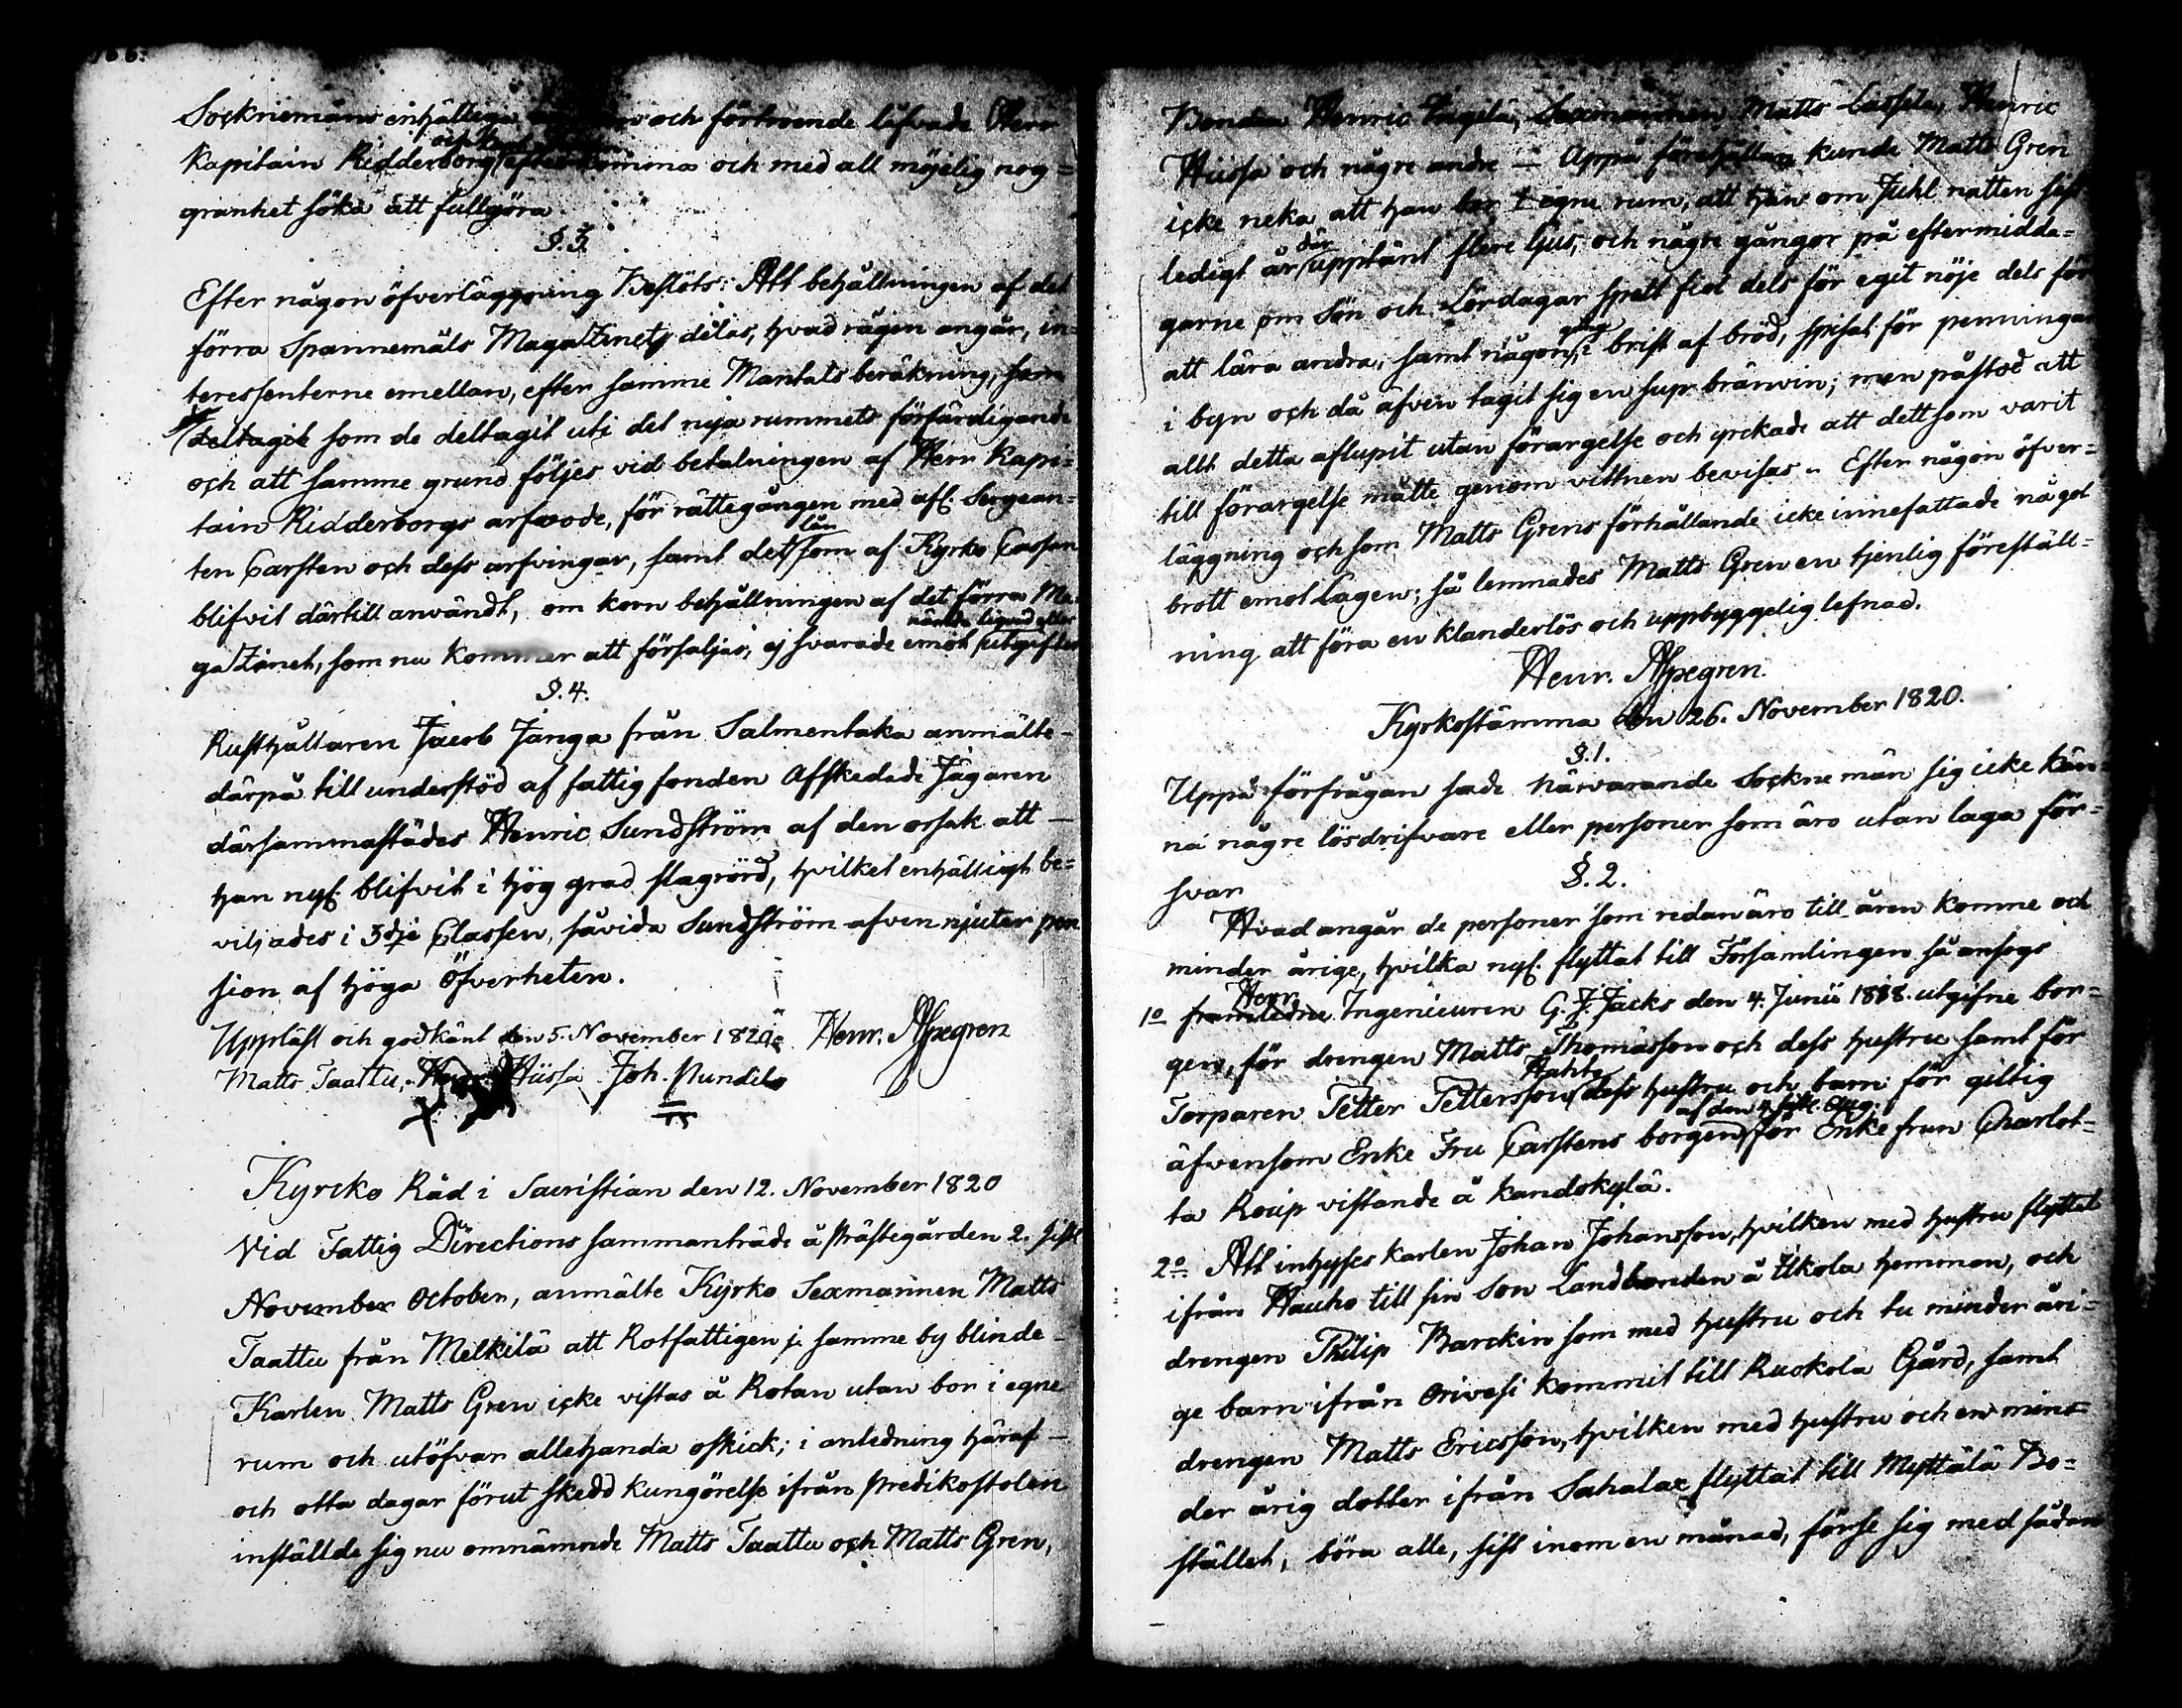 Socknemäns enhälliga och förtroende lofvade Herr
Kapitain Ridderborg efterkomma och med all möjelig nog=
granhet söka att fullgöra.
§. 3.
Efter någon öfverläggning Beslöts: Att behållningen af det
förra Spannemåls Magatzinet, delas, hvad rågen angår, in=
teressenterne emellan, efter samma Mantals beräkning, som
deltagit som de deltagit uti det nya rummets förfärdigande
och att samma grund följes vid betalningen af Herr Kapi=
tain Ridderborgs arfvode, för rättegången med afl. Sergean=
ten Carsten och dess arfvingar, samt det lån som af Kyrko Cassan
blifvit därtill användt, om korn behållningen af det förra Ma=
gatzinet, som nu kommer att försäljas, ej svarade emot utgiften
§. 4.
Rusthållaren Jacob Jänga från Salmentaka anmälte
därpå till understöd af fattig fonden Afskedade Jägaren
därsammastädes Henric Sundström af den orsak att
han nyl. blifvit i hög grad slagrörd, hvilket enhälligt be=
viljades i 3dje Classen, såvida Sundström afven njuter pen
sion af höga Öfverheten.
Uppläst och godkänt den 5. November 1820. Henr. Aspegren
Matts Taattu, Hüssa Joh. Nundila
Kyrcko Råd i Sacristian den 12. November 1820
Vid Fattig Directions sammanträde å Prästegården 2. sistl
November October, anmälte Kyrko Sexmannen Matts
Taattu från Melkilä att Rotfattigen i samme by blinde
Karlen Matts Gren icke vistas å Rotan utan bor i egne
rum och utöfvar allehanda oskick; i anledning häraf
och otta dagar förut skedd kungörelse ifrån Predikostolen
inställde sig nu omnämnde Matts Taattu och Matts Gren,
Bonden Henric Sexmannen Matts Lassila, Henric
Hüssa och någre andre — Appå förehållan kunde Matts Gren
icke neka att han bor i egne rum, att han om Juhl natten sist
ledigt år där upptänt flere ljus, och någre gångor på eftermidda=
garne om Sön och Lördagar spelt fiol dels för eget nöje dels för
att lära andra, samt någon gång i brist af bröd, spisat för penningar
i byn och då äfven tagit sig en sup bränvin; men påstod att
allt detta aflupit utan förargelse och yrckade att dett som varit
till förargelse måtte genom vittnen bevisas. Efter någon öfver=
läggning och som Matts Grens förhållande icke innefattade något
brott emot Lagen; så lemnades Matts Gren en tjenlig föreställ=
ning att föra en klanderlös och uppbyggelig lefnad.
Henr. Aspegren.
Kyrkostämma den 26. November 1820.
§. 1.
Uppå förfrågan sade närvarande Sockne män sig icke kän=
na någre lösdrifvare eller personer som äro utan laga för=
svar
§. 2.
Hvad angår de personer som redan äro till åren komne och
minder årige, hvilka nyl. flyttat till Församlingen så ansogs
1o framledne Herr Ingenieuren G. J. Jacks den 4. Junii 1818. utgifne bor=
gen, för drengen Matts Thomasson och dess hustru samt för
Torparen Petter Pettersson Hahte dess hustru och barn för giltig
äfvensom Enke Fru Carstens borgen af den 4. sistl. Aug. för Enke frun Charlot=
ta Roup vistande å Kandokylä.
2o Att inhyses karlen Johan Johansson, hvilken med hustru flyttat
ifrån Hauho till sin Son Landbonden å Ukola hemman, och
drengen Philip Barckin som med hustru och tu minder åri=
ge barn ifrån Orivesi kommit till Ruokola Gård, samt
drengen Matts Ericsson, hvilken med hustru och en min=
der årig dotter ifrån Sahalax flyttat till Myttälä Bo=
stället, böra alle, sist inom en månad, förse sig med sådan